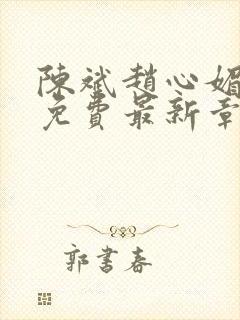 陳斌趙心媚
免費最新章
郭書春